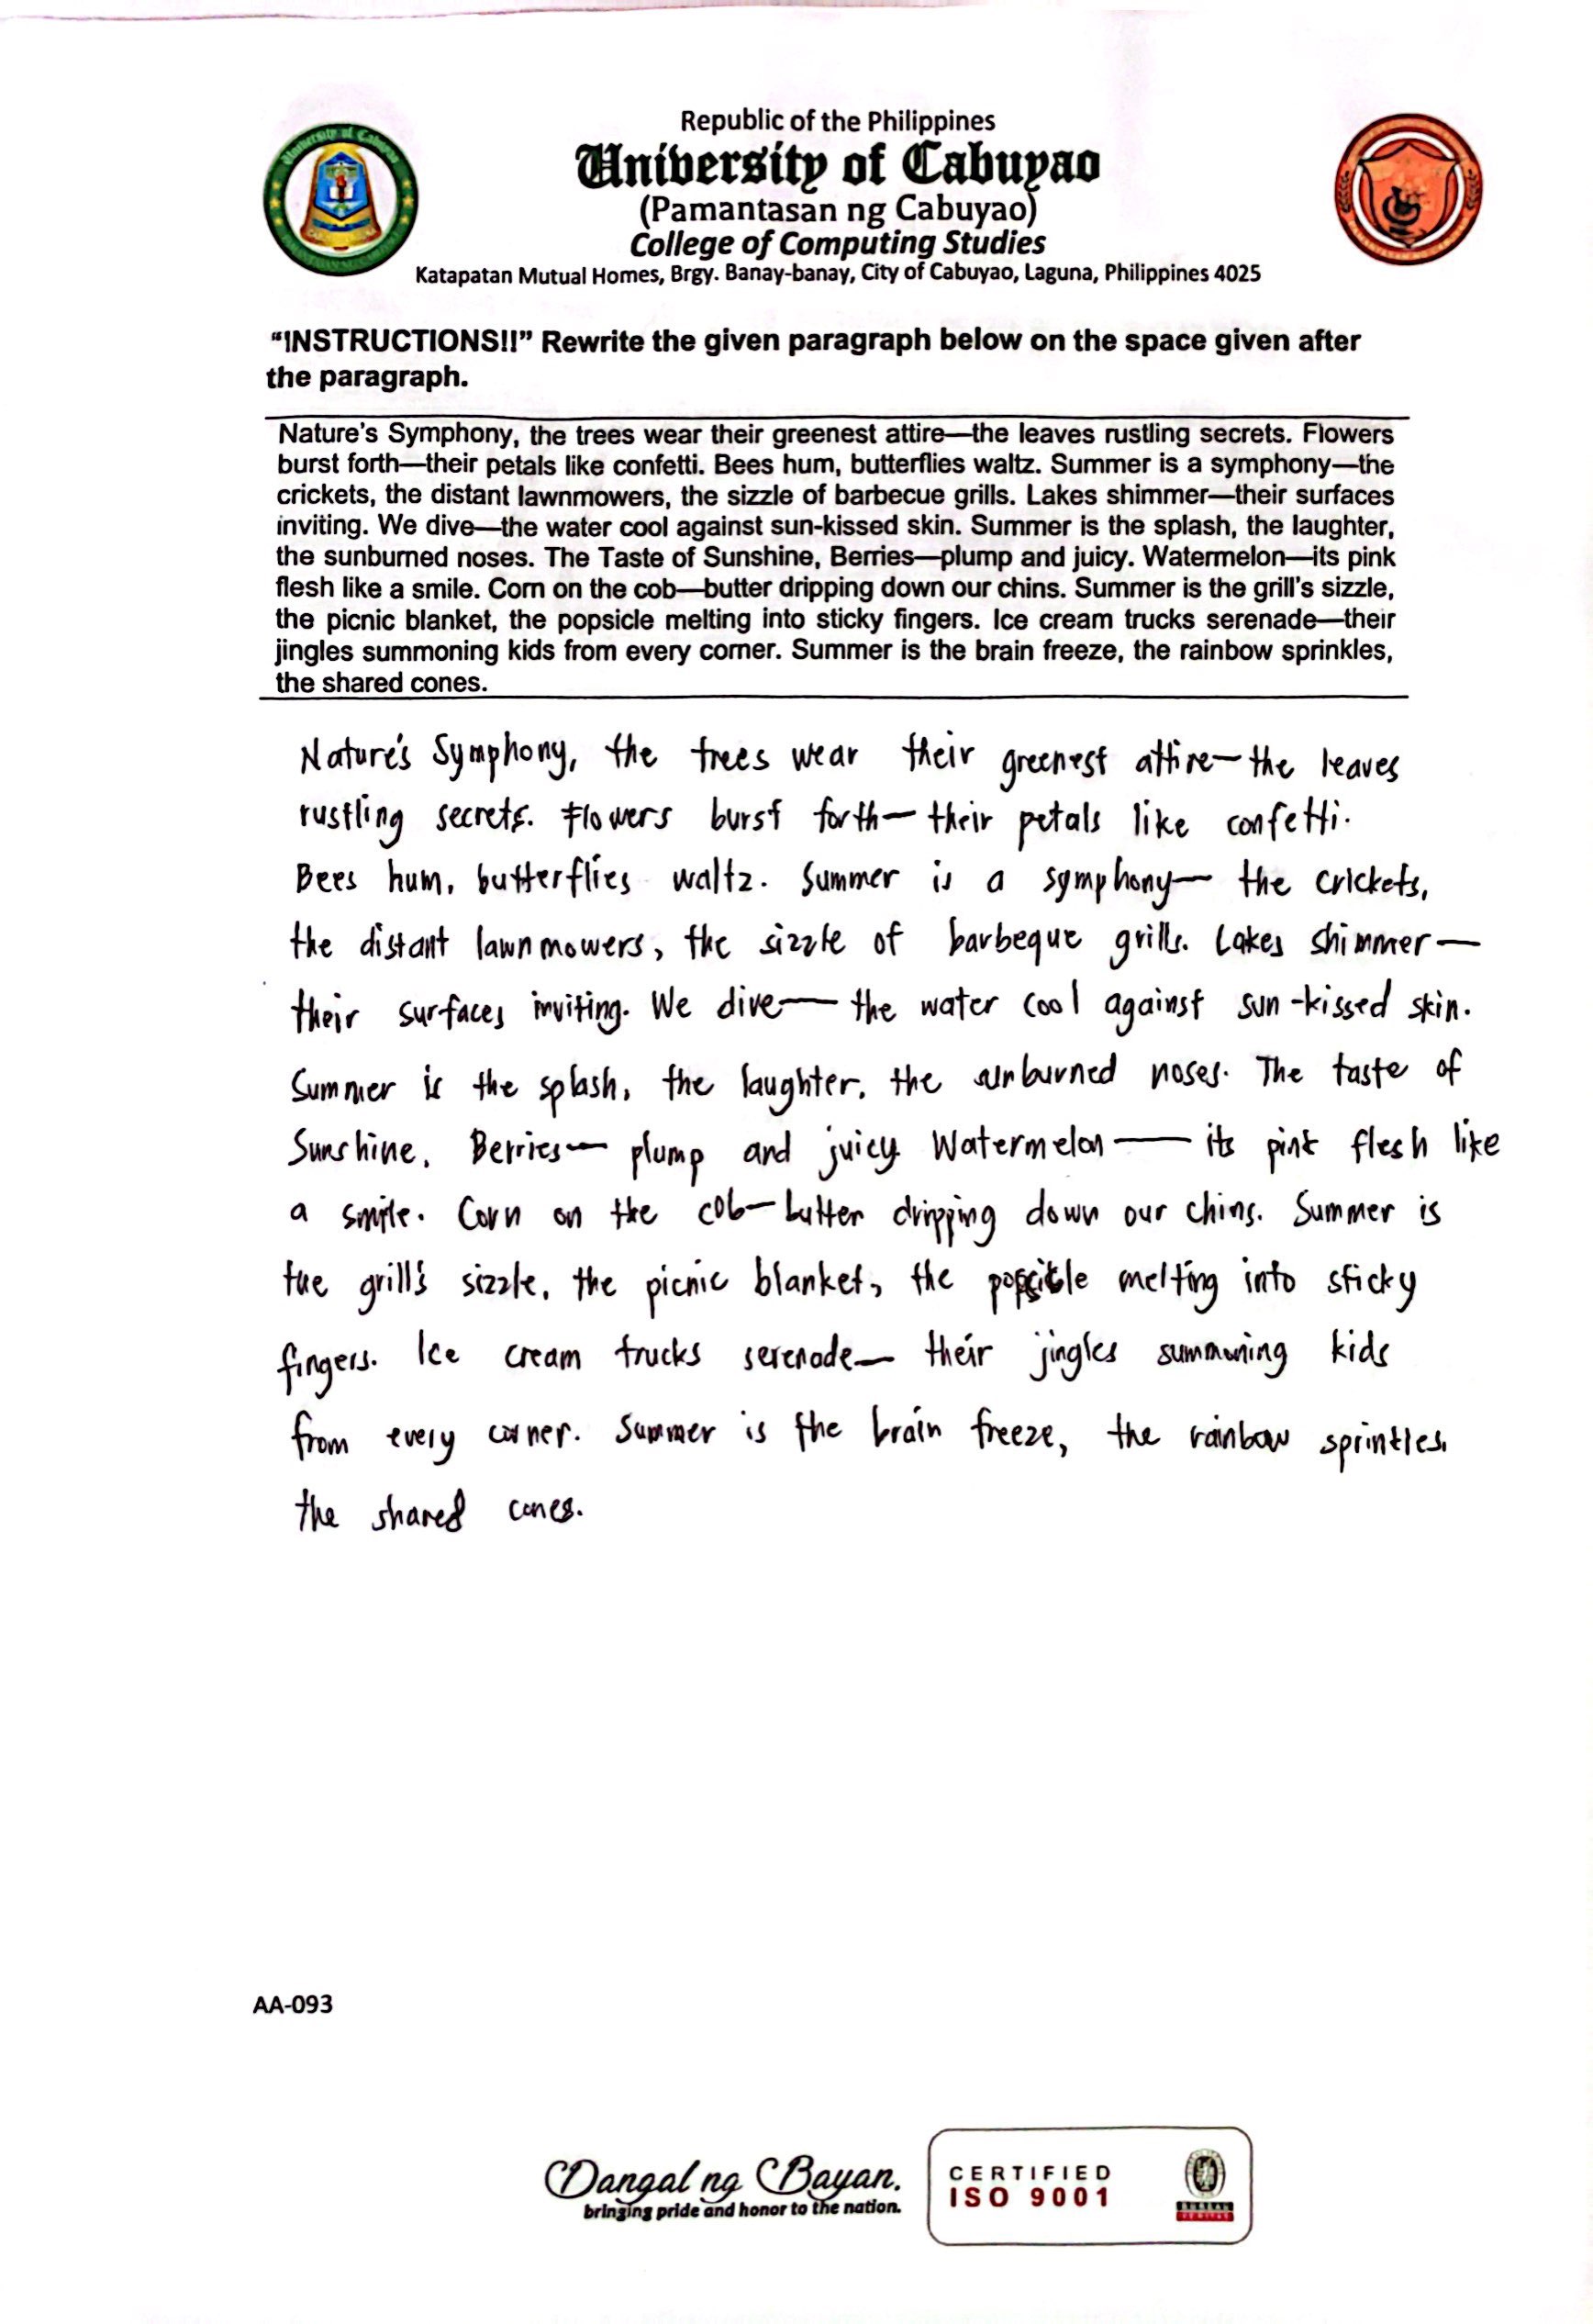 University of Cabuyao
Republic of the Philippines
University of Cabuyao
(Pamantasan ng Cabuyao)
College of Computing Studies
Katapatan Mutual Homes, Brgy. Banay-banay, City of Cabuyao, Laguna, Philippines 4025
“INSTRUCTIONS!!” Rewrite the given paragraph below on the space given after
the paragraph.
Nature's Symphony, the trees wear their greenest attire—the leaves rustling secrets. Flowers
burst forth—their petals like confetti. Bees hum, butterflies waltz. Summer is a symphony—the
crickets, the distant lawnmowers, the sizzle of barbecue grills. Lakes shimmer—their surfaces
inviting. We dive—the water cool against sun-kissed skin. Summer is the splash, the laughter,
the sunburned noses. The Taste of Sunshine, Berries—plump and juicy. Watermelon—its pink
flesh like a smile. Corn on the cob—butter dripping down our chins. Summer is the grill's sizzle,
the picnic blanket, the popsicle melting into sticky fingers. Ice cream trucks serenade—their
jingles summoning kids from every corner. Summer is the brain freeze, the rainbow sprinkles,
the shared cones.
Nature's Symphony, the trees wear their greenest attire—the leaves
rustling secrets. Flowers burst forth—their petals like confetti.
Bees hum, butterflies waltz. Summer is a symphony—the crickets,
the distant lawnmowers, the sizzle of barbeque grills. Lakes shimmer—
their surfaces inviting. We dive—the water cool against sun-kissed skin.
Summer is the splash, the laughter, the sunburned noses. The taste of
Sunshine, Berries—plump and juicy. Watermelon—its pink flesh like
a smile. Corn on the cob—butter dripping down our chins. Summer is
the grill's sizzle, the picnic blanket, the popsicle melting into sticky
fingers. Ice cream trucks serenade—their jingles summoning kids
from every corner. Summer is the brain freeze, the rainbow sprinkles,
the shared cones.
AA-093
Dangal ng Bayan.
bringing pride and honor to the nation.
CERTIFIED
ISO 9001
BUREAU
VERITAS